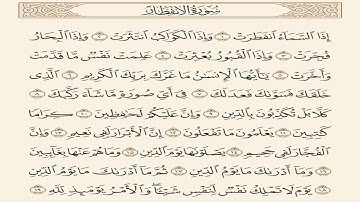 سُورَةُ الانفِطَار
إِذَا ٱلسَّمَآءُ ٱنفَطَرَتۡ ١ وَإِذَا ٱلۡكَوَاكِبُ ٱنتَثَرَتۡ ٢ وَإِذَا ٱلۡبِحَارُ
فُجِّرَتۡ ٣ وَإِذَا ٱلۡقُبُورُ بُعۡثِرَتۡ ٤ عَلِمَتۡ نَفۡسٞ مَّا قَدَّمَتۡ
وَأَخَّرَتۡ ٥ يَٰٓأَيُّهَا ٱلۡإِنسَٰنُ مَا غَرَّكَ بِرَبِّكَ ٱلۡكَرِيمِ ٦ ٱلَّذِي
خَلَقَكَ فَسَوَّىٰكَ فَعَدَلَكَ ٧ فِيٓ أَيِّ صُورَةٖ مَّا شَآءَ رَكَّبَكَ ٨
كَلَّا بَلۡ تُكَذِّبُونَ بِٱلدِّينِ ٩ وَإِنَّ عَلَيۡكُمۡ لَحَٰفِظِينَ ١٠ كِرَامٗا
كَٰتِبِينَ ١١ يَعۡلَمُونَ مَا تَفۡعَلُونَ ١٢ إِنَّ ٱلۡأَبۡرَارَ لَفِي نَعِيمٖ ١٣ وَإِنَّ
ٱلۡفُجَّارَ لَفِي جَحِيمٖ ١٤ يَصۡلَوۡنَهَا يَوۡمَ ٱلدِّينِ ١٥ وَمَا هُمۡ عَنۡهَا بِغَآئِبِينَ
١٦ وَمَآ أَدۡرَىٰكَ مَا يَوۡمُ ٱلدِّينِ ١٧ ثُمَّ مَآ أَدۡرَىٰكَ مَا يَوۡمُ ٱلدِّينِ
١٨ يَوۡمَ لَا تَمۡلِكُ نَفۡسٞ لِّنَفۡسٖ شَيۡـٔٗاۖ وَٱلۡأَمۡرُ يَوۡمَئِذٖ لِّلَّهِ ١٩